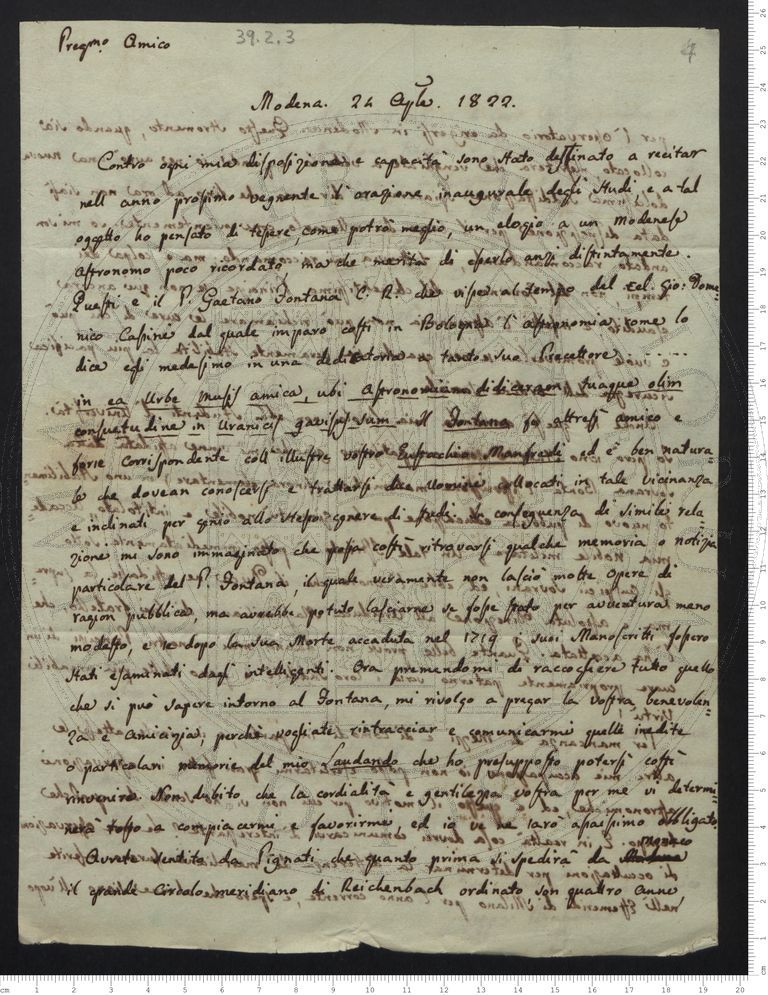 Pregmo. Amico
39.2.3
Modena. 24 Aple. 1822.
Contro ogni mia disposizione e capacità sono stato destinato a recitar
nell'anno prossimo vegnente l'orazione inaugurale degli studi e a tal
oggetto ho pensato di tessere, come potrò meglio, un elogio a un Modenese
Astronomo poco ricordato, ma che merita di esserlo anzi distintamente.
Questi è il P. Gaetano Fontana C. R. che visse nel tempo del cel. Gio: Dome-
nico Cassine dal quale imparò costì in Bologna l'astronomia come lo
dice egli medesimo in una dedicatoria a tanto suo Precettore .....
in ea Urbe Musis amica, ubi Astronomiam didiceram, tuaque olim
consuetudine in Uranicis gavisus sum. Il Fontana fu altresì amico e
forse corrispondente coll'illustre vostro Eustacchio Manfredi ed è ben natura-
le che dovean conoscersi e trattarsi due Uomini allocati in tale vicinanza
e inclinati per genio allo stesso genere di studi. In conseguenza di simile rela-
zione mi sono immaginato che possa costì ritrovarsi qualche memoria o notizia
particolare del P. Fontana, il quale veramente non lasciò molte opere di
ragion pubblica, ma avrebbe potuto lasciarne se fosse stato per avventura meno
modesto, e se dopo la sua Morte accaduta nel 1719 i suoi Manoscritti fossero
stati esaminati dagl'intelligenti. Ora premendomi di raccogliere tutto quello
che si può sapere intorno al Fontana, mi rivolgo a pregar la vostra benevolen-
za e amicizia, perchè vogliate rintracciar e comunicarmi quelle inedite
o particolari memorie del mio Laudando che ho presupposto potersi costì
rinvenire. Non dubito che la cordialità e gentilezza vostra per me vi determi-
nerà tosto a compiacermi e favorirmi ed io ve ne sarò assaissimo obbligato.
Avrete sentito da Pignati che quanto prima si spedirà da Monaco
il grande Circolo meridiano di Reichenbach ordinato son quattro anne